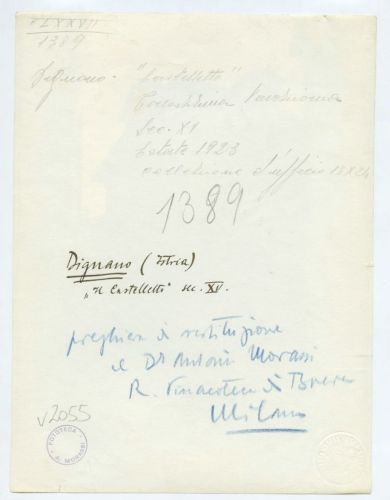 LXXVII
1389
Dignano - "Castelletto"
Sec. XV
Estate 1923
collezione d'ufficio 18x24
1389
Dignano (Istria)
"Il Castelletto" sec. XV.
preghiera di restituzione
al Dr Antonio Morassi
R. Pinacoteca di Brera
Milano
v2055
FOTOTECA
A. MORASSI